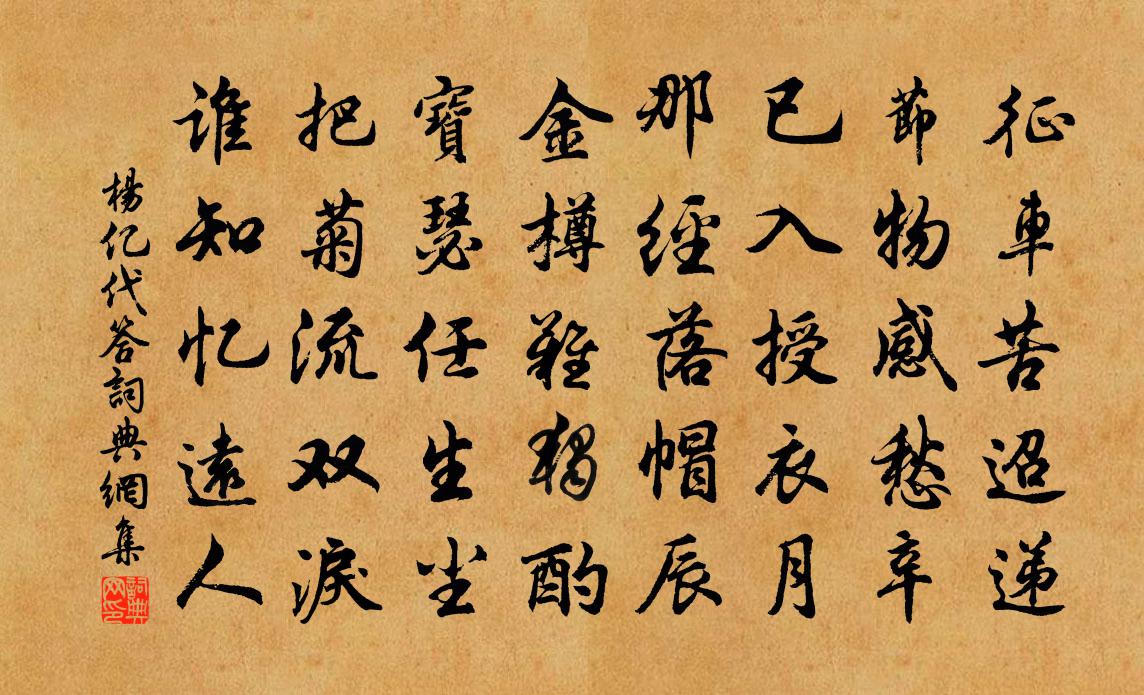 征車苦迢递
節物感愁辛
已入授衣月
那經落帽辰
金樽難獨酌
寶瑟任生尘
把菊流双淚
谁知忆遠人
楊亿代答詞典網集
詞典网印